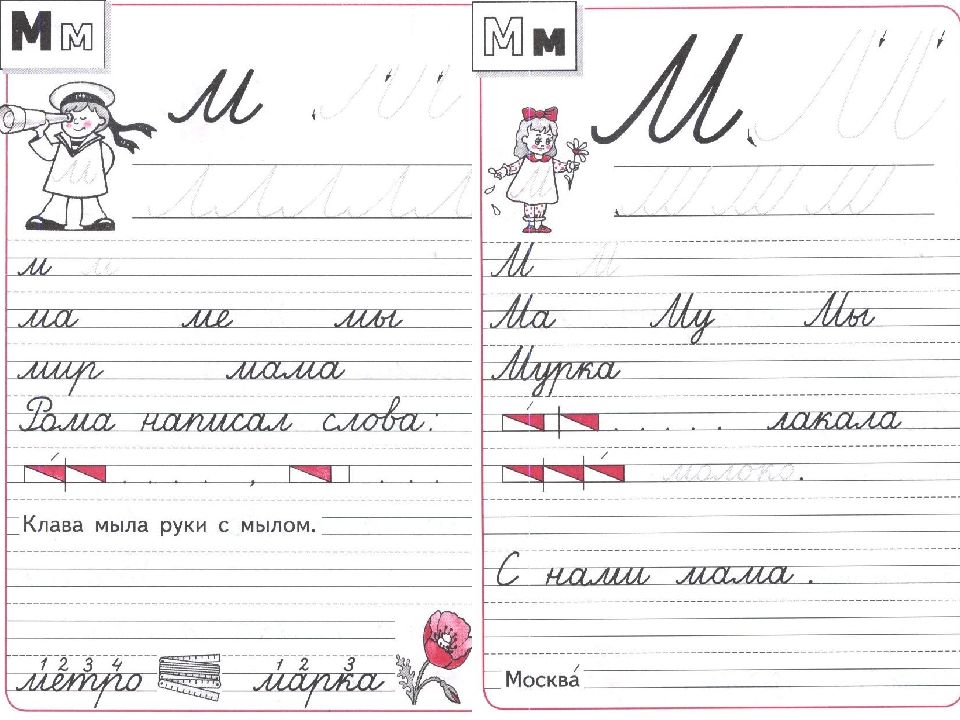 М м
м м м
м м м м м
м м
ма ме мы
мир мама
Рома написал слова:
. . . . . , . . .
Клава мыла руки с мылом.
1 2 3 4 1 2 3
метро марка
М м
М М М
М М М
М М
Ма Му Мы
Мурка
. . . . . лакала
молоко.
С нами мама.
Москва́